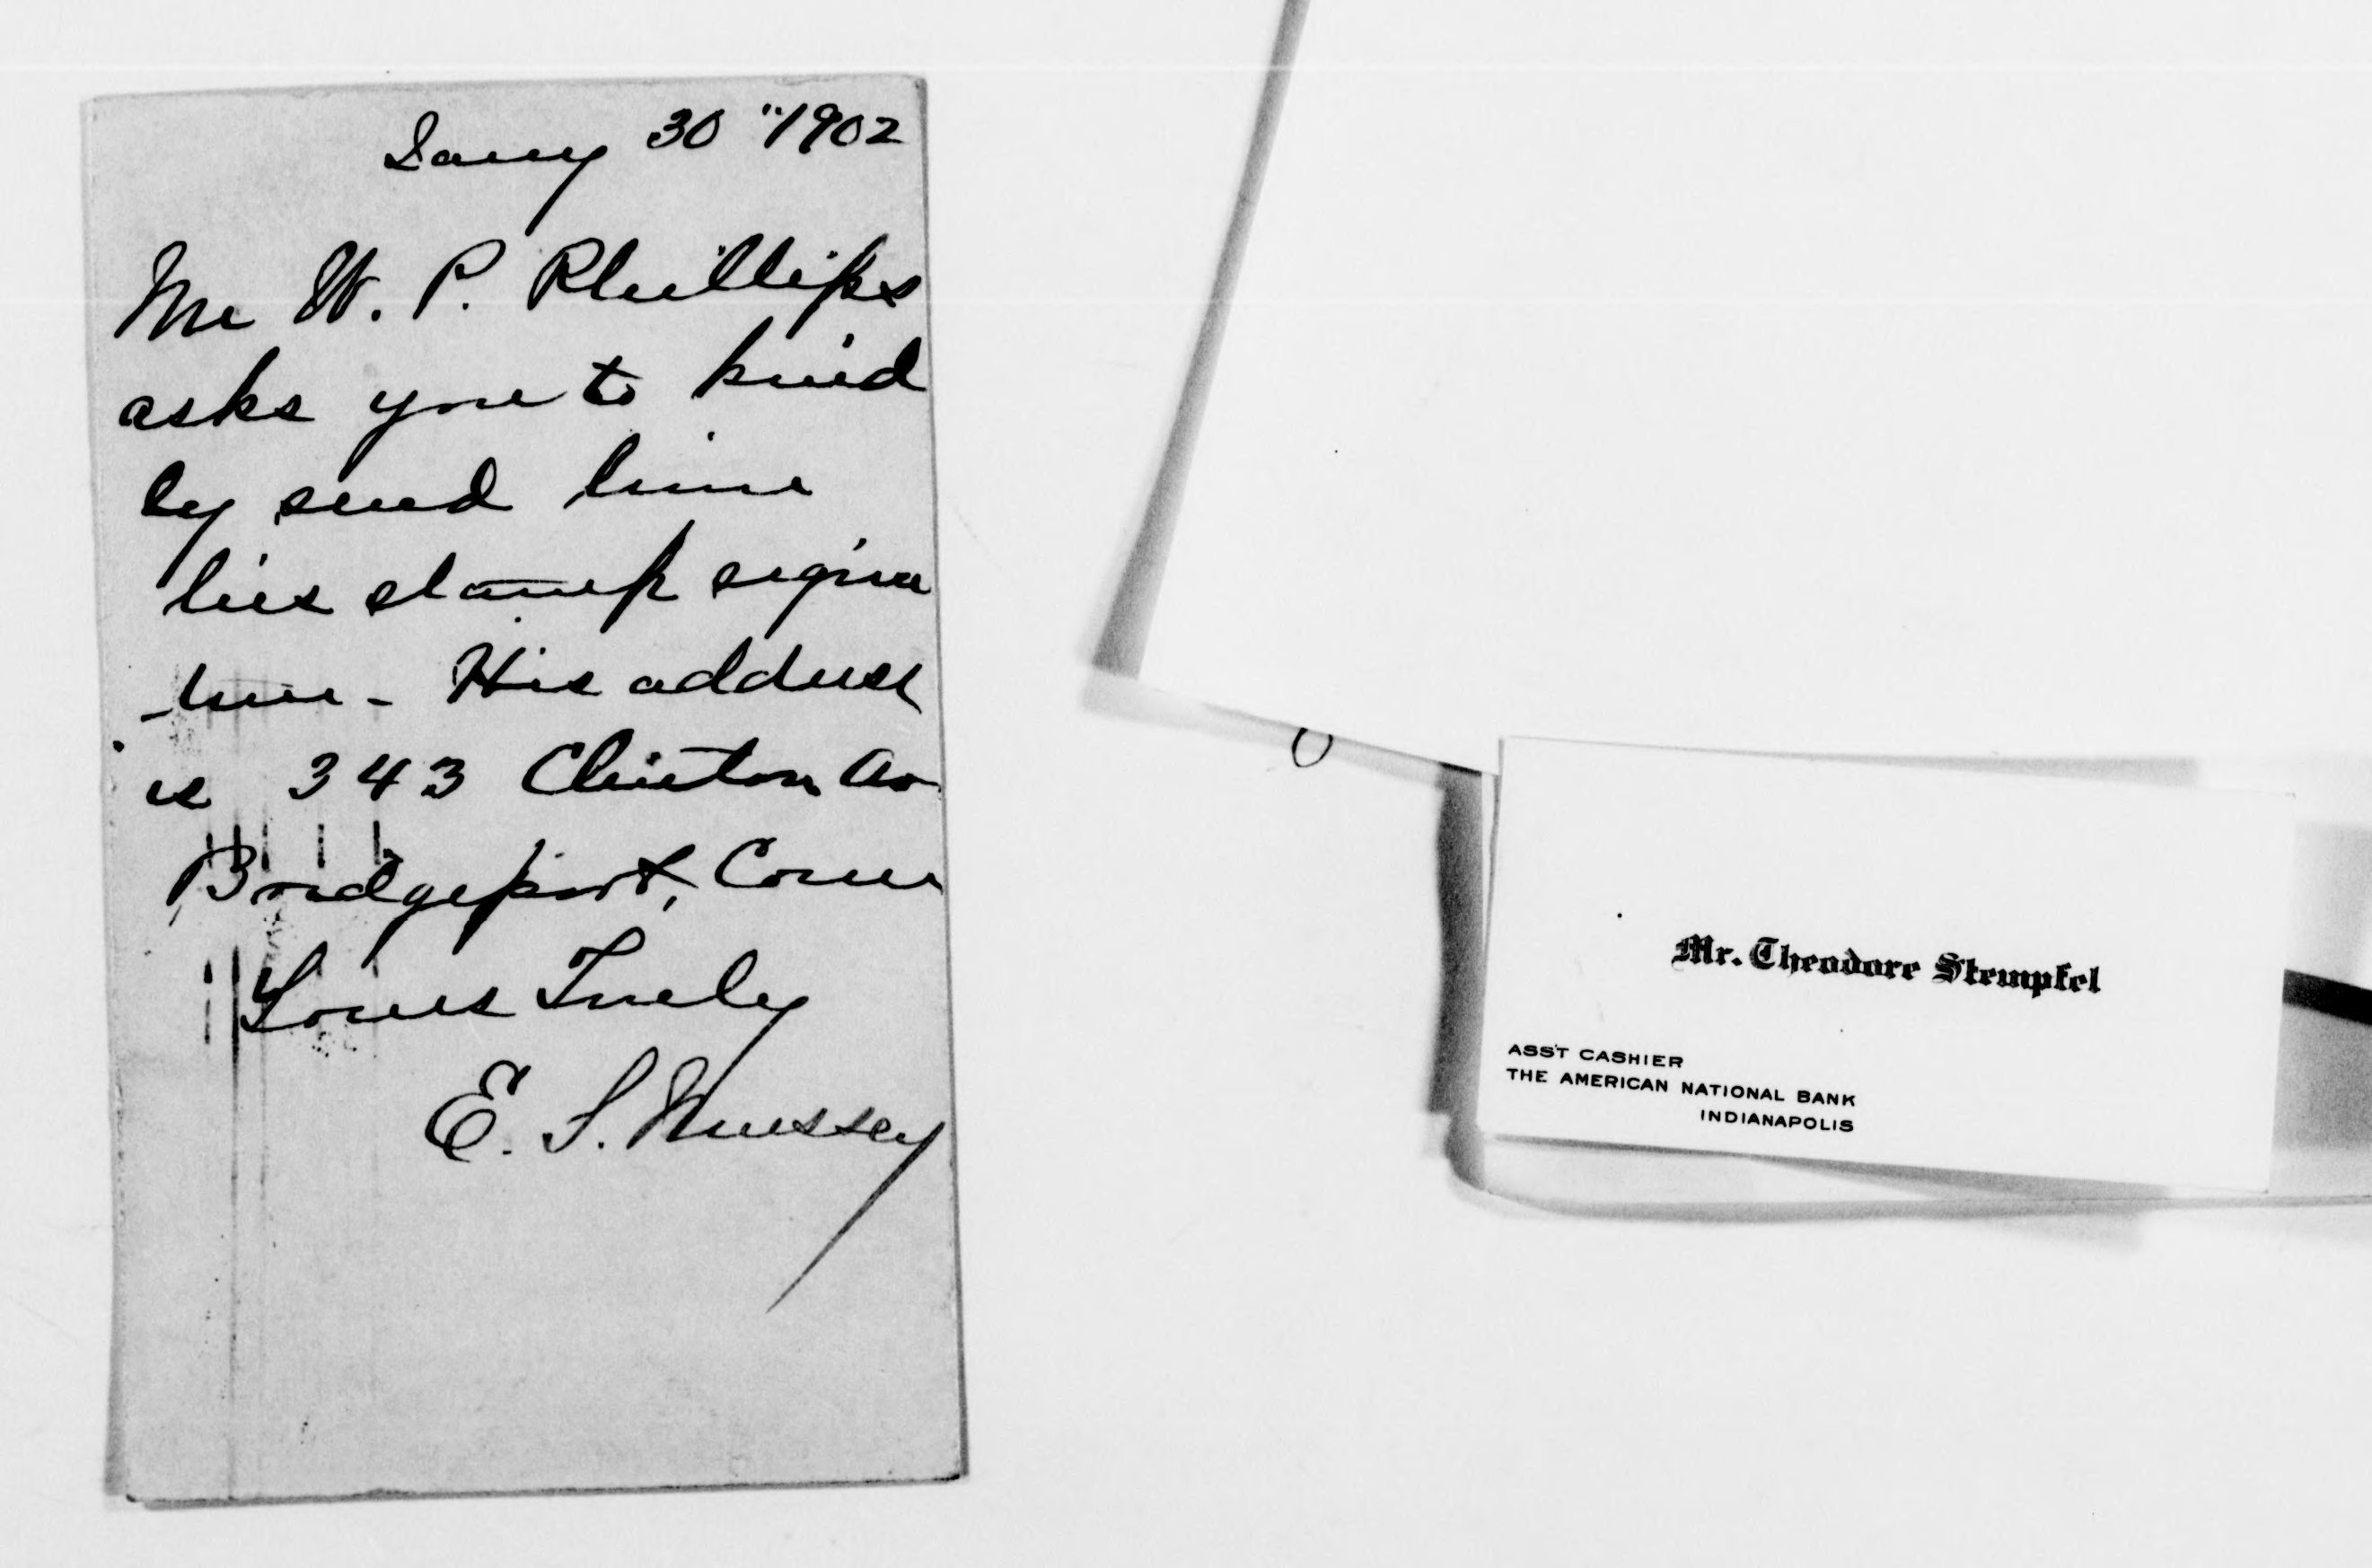 Jany 30" 1902
Mr W. P. Phillips
asks you to kind
ly send him
his stamp signa
-ture - His address
is 343 Clinton Av
Bridgeport, Conn
Yours Truly
E. S. Mussey
Mr. Theodore Stempfel
ASS'T CASHIER
THE AMERICAN NATIONAL BANK
INDIANAPOLIS